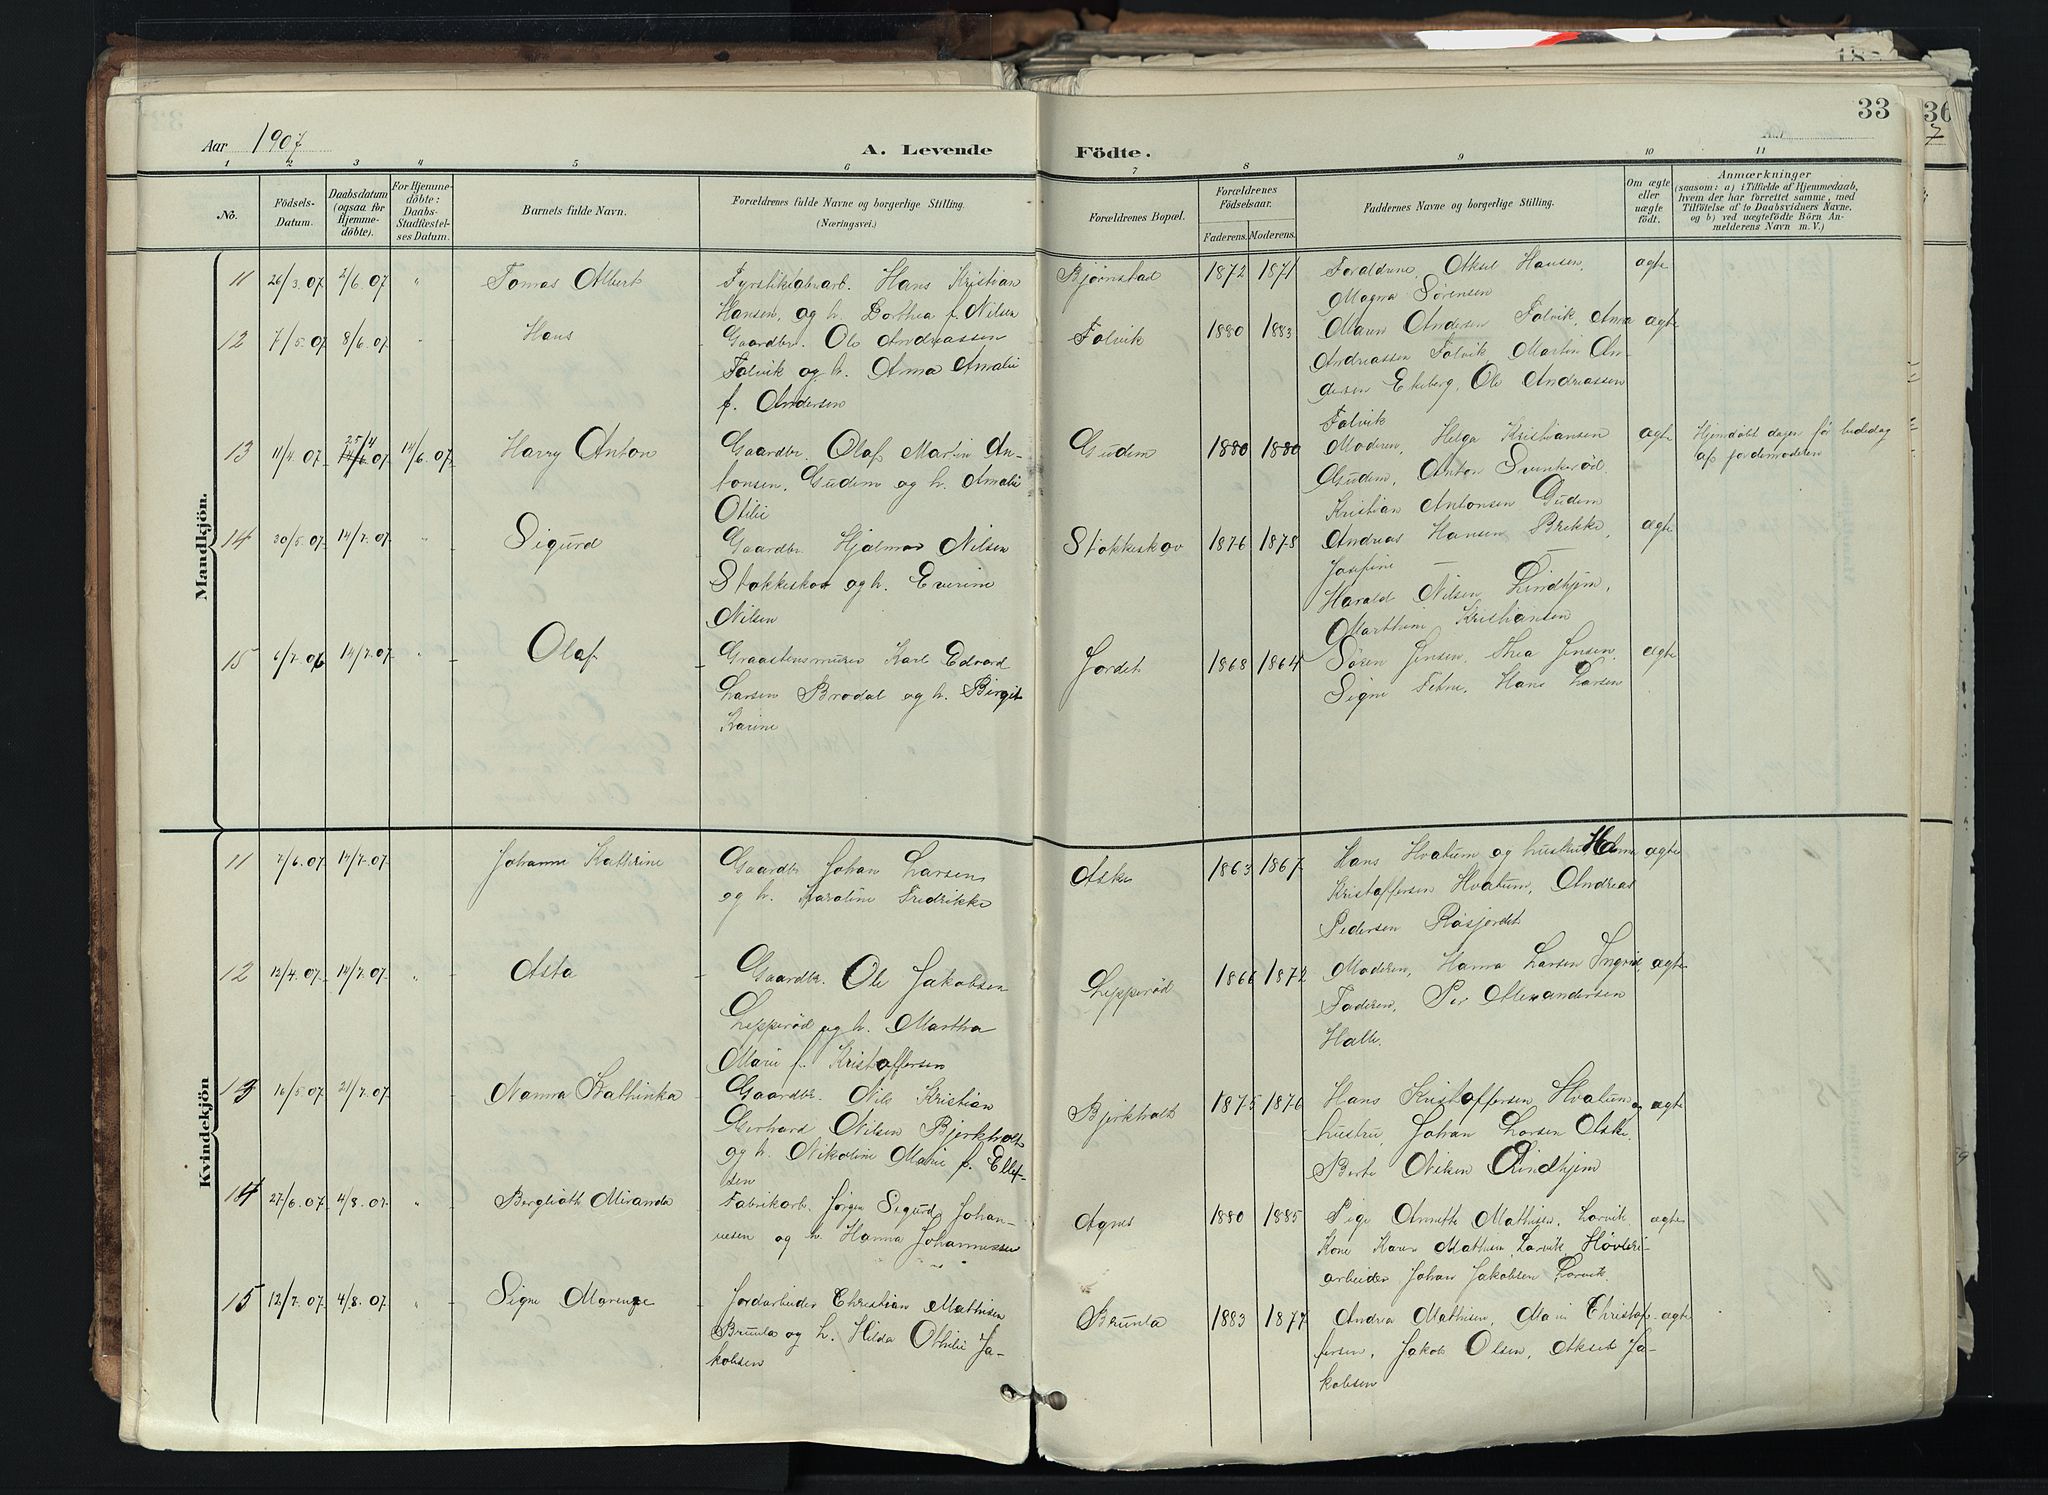 33
Aar 1907
A. Levende Födte.
1 2 3 4 5 6 7 8 9 10 11
No.
Födsels-Datum.
Daabsdatum (ogsaa for Hjemme-döbte).
For Hjemme-döbte: Daabs-Stadfestel-ses Datum.
Barnets fulde Navn.
Forældrenes fulde Navne og borgerlige Stilling.
(Næringsvei.)
Forældrenes Bopæl.
Forældrenes Födselsaar.
Faderens. Moderens.
Faddernes Navne og borgerlige Stilling.
Om ægte eller uægte födt.
Anmærkninger
(saasom: a) i Tilfælde af Hjemmedaab, hvem der har forrettet samme, med Tilföielse af to Daabsvidners Navne, og b) ved uægtefödte Börn An-melderens Navn m. V.)
Mandkjön.
11 26/3.07 2/6.07 " Tomas Albert
Fyrstikfabrarb. Hans Kristian
Hansen, og h. Dothea f. Nilsen
Bjørnstad 1872 1871
Forældrene, Aksel Hansen,
Magna Sørensen
ægte
12 7/5.07 8/6.07 " Hans
Gaardbr. Ole Andreassen
Falvik og h. Anna Amalie
f. Andersen
Falvik 1880 1883
Maren Andersen Falvik, Anna
Andreassen Falvik, Martin An-
dersen Ekeberg, Ole Andreassen
Falvik
ægte
13 11/4.07 25/4 14/6.07 14/6.07 Harry Anton
Gaardbr. Olaf Martin An-
tonsen, Gudem og h. Amalie
Otilie
Gudem 1880 1880
Moderen, Helga Kristiansen
Gudem, Anton Svinkerød.
Kristian Antonsen Gudem
ægte
Hjemdøbt dagen før bededag
af jordemoderen
14 30/5.07 14/7.07 " Sigurd
Gaardbr. Hjalmar Nilsen
Stokkeskov og h. Everine
Nilsen
Stokkeskov 1876 1878
Andreas Hansen Brekke,
Josefine —
Harald Nilsen Lindhjem,
Marthine Kristiansen
ægte
15 6/7.06 14/7.07 " Olaf
Graastensmurer Karl Edvard
Larsen Brodal og h. Birgit
Karine
Jordet 1868 1864
Søren Jensen, Thea Jensen,
Signe Hans Larsen
ægte
Kvindekjön
11 7/6.07 14/7.07 Johanne Kathrine
Gaardbr Johan Larsen
og h. Karoline Fredrikke
Aske 1863 1867
Hans Hvatum og hustru
Kristoffersen Hvatum, Andreas
Pedersen Røsjordet
ægte
12 12/4.07 14/7.07 " Asta
Gaardbr. Ole Jakobsen
Lepperød og h. Martha
Marie f. Kristoffersen
Lepperød 1866 1872
Moderen, Hanna Larsen Ingrid
Faderen, Per Alexandersen
Halle.
ægte
13 16/5.07 21/7.07 Nanna Kathinka
Gaardbr. Nils Kristian
Gerhard Nilsen Bjerkholt
og h. Nikoline Marie f. Ellef-
sen
Bjerkholt 1875 1876
Hans Kristoffersen Hvatum og
hustru, Johan Larsen Aske,
Berte Nilsen Lindhjem
ægte
14 27/6.07 4/8.07 " Berglioth Miranda
Fabrikarb. Jørgen Sigurd Johan-
nesen og h. Hanna Johannessen
Agnes 1880 1885
Pige Annette Mathisen, Larvik
Kone Karen Mathisen, Larvik, Høvleri-
arbeider Johan Jakobsen Larvik
ægte
15 12/7.07 4/8.07 " Signe
Jordarbeider Christian Mathisen
Brunla og h. Hilda Othilie Ja-
kobsen
Brunla 1883 1877
Andrea Mathisen, Marie Christof-
fersen, Jakob Olsen, Aksel Ja-
kobsen
ægte
36